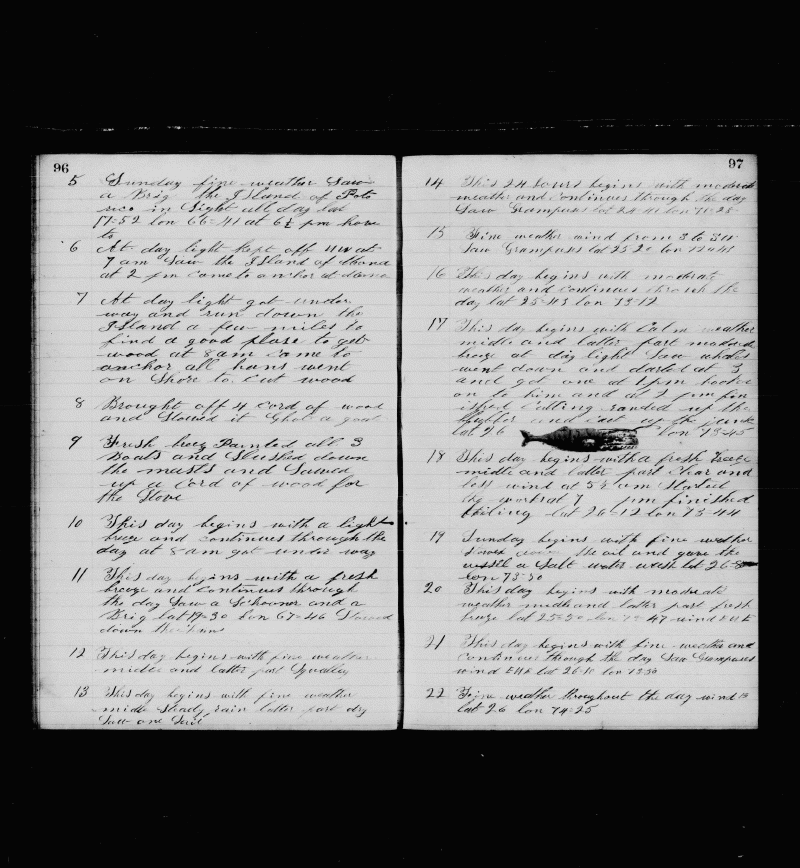 96
5 Sunday fine weather Saw
a Brig the Island of Poto
rico in Sight all day lat
17=52 lon 66=41 at 6½ pm hove
to
6 At day light kept off NW at
7 am Saw the Island of Mona
at 2 pm came to anchor at Mona
7 At day light got under
way and run down the
Island a few miles to
find a good plase to get
wood at 8 am came to
anchor all hans went
on Shore to cut wood
8 Brought off 4 cord of wood
and Stowed it
9 Fresh breeg Painted all 3
Boats and Slushed down
the masts and Sawed
up a cord of wood for
the Stove
10 This day begins with a light
breeze and continues through the
day at 8 am got under way
11 This day begins with a fresh
breeze and continues through
the day Saw a Schooner and a
Brig lat 19=30 lon 67=46 Stowed
down
12 This day begins with fine weather
midle and latter part Squalley
13 This day begins with fine weather
midle Steady rain latter part dry
Saw one Sail
97
14 This 24 hours begins with moderate
weather and continues through the day
Saw Grampuses lat 24=41 lon 71=28
15 Fine weather wind from S to SW
Saw Grampuses lat 25=20 lon
16 This day begins with moderate
weather and continues through the
day lat 25=43 lon 73=12
17 This day begins with Calm weather
midle and latter part moderate
breeze at day light Saw whales
went down and darted at 3
and got one at 1 pm hooked
on to him and at 7 pm fin
ished Cutting
the junk
lat 26 lon 73=45
18 This day begins with a fresh breeze
midle and latter part Clear and
less wind at 5½ am Started
the works at 7 pm finished
boiling lat 26=12 lon 73=44
19 Sunday begins with fine weather
the oil and gave the
vessel a Salt water wash lat 26=8
lon 73=30
20 This day begins with moderate
weather midle and latter part fresh
breeze lat 25=50 lon wind
21 This day begins with fine weather and
continues through the day Saw Grampuses
wind lat 26=11 lon 73=30
22 Fine weather throughout the day wind
lat 26 lon 74=25